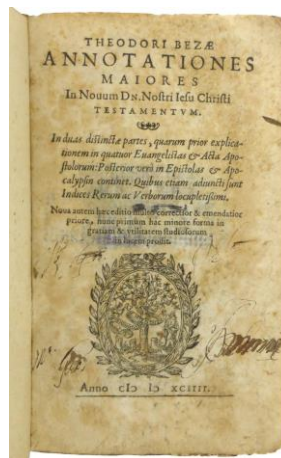 THEODORI BEZÆ
ANNOTATIONES
MAIORES
In Nouum DN. Nostri Iesu Christi
TESTAMENTVM.
In duas distinctæ partes, quarum prior explica-
tionem in quatuor Euangelistas & Acta Apo-
stolorum: Posterior verò in Epistolas & Apo-
calypsin continet. Quibus etiam adiuncti sunt
Indices Rerum ac Verborum locupletissimi.
Noua autem hæc editio multo correctior & emendatior
priore, nunc primùm hac minore forma in
gratiam & vtilitatem studiosorum
in lucem prodit.
Anno cIɔ Iɔ XCIIII.